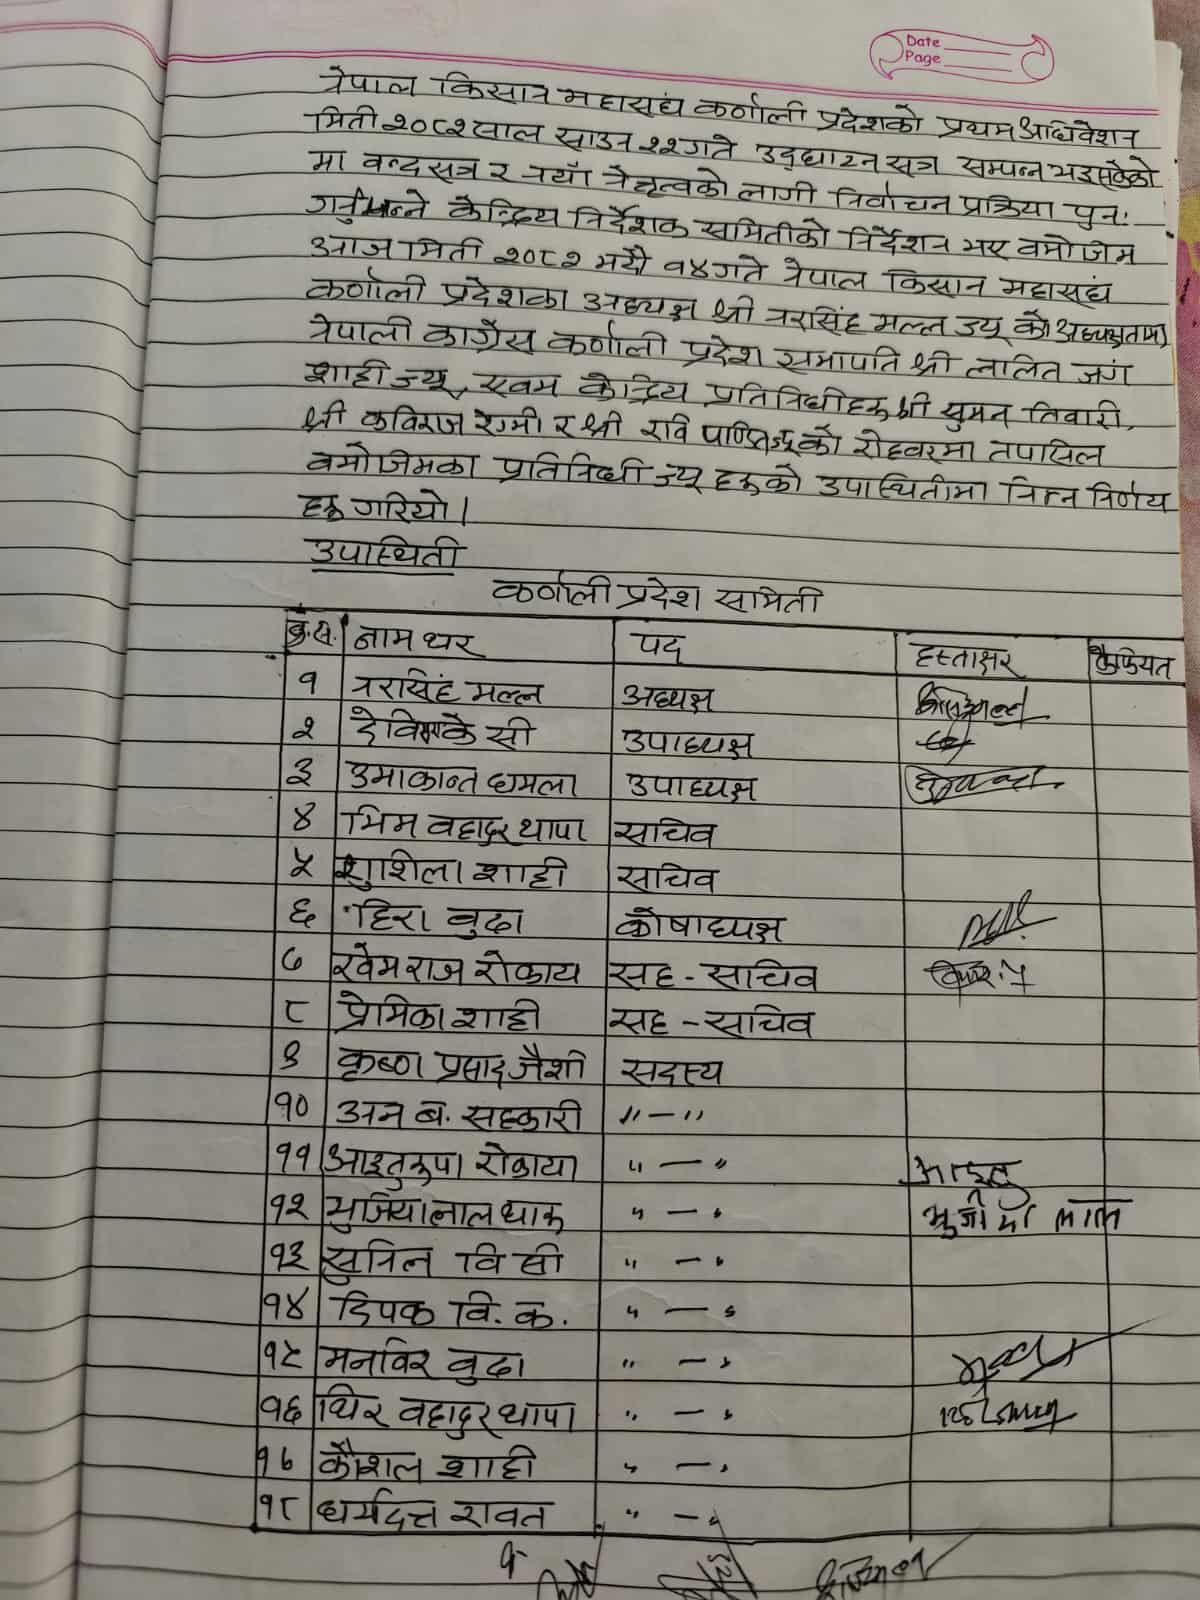 Date
Page
नेपाल किसान महासंघ कर्णाली प्रदेशको प्रथम अधिवेशन
मिती २०८२ साल साउन २२ गते उद्घाटन सत्र सम्पन्न भइसकेको
मा वन्दसत्र र नयाँ नेतृत्वको लागी निर्वाचन प्रक्रिया पुनः
गर्नुभन्ने केन्द्रिय निर्देशक समितीको निर्देशन भए वमोजिम
आज मिती २०८२ भदौ १४ गते नेपाल किसान महासंघ
कर्णाली प्रदेशका अध्यक्ष श्री नरसिंह मल्ल ज्यू को अध्यक्षतामा
नेपाली काग्रेस कर्णाली प्रदेश सभापति श्री ललित जंग
शाही ज्यू, एवम केन्द्रिय प्रतिनिधीहरू श्री सुमन तिवारी,
श्री कविराज रेग्मी र श्री रवि ज्यूको रोहवरमा तपासिल
वमोजिमका प्रतिनिधी ज्यू हरूको उपास्थितीमा निम्न निर्णय
हरू गरियो।
उपास्थिती
कर्णाली प्रदेश समिती
क्र.स. नाम थर पद हस्ताक्षर कैफियत
१ नरसिंह मल्ल अध्यक्ष
२ देविराम के सी उपाध्यक्ष
३ उमाकान्त धमला उपाध्यक्ष
४ भिम वहादुर थापा सचिव
५ शुशिला शाही सचिव
६ हिरा वुढा कोषाध्यक्ष
७ खेमराज रोकाय सह - सचिव
८ प्रेमिका शाही सह - सचिव
९ कृष्ण प्रसाद जैशी सदस्य
१० अम ब. सहकारी " - "
११ आइतुरूपा रोकाया " - "
१२ भुजियालाल थारू " - " भुजीया लाल
१३ सुनिल वि सी " - "
१४ डिपक वि. क. " - "
१५ मनविर वुढा " - "
१६ थिर वहादुर थापा " - "
१७ कौशल शाही " - "
१८ धर्मदत्त रावत " - "